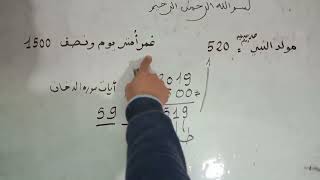 بسم الله الرحمن الرحيم
مولد النبي 520 عمر أمتي يوم ونصف 1500
2019
500
آيات سورة الدخان
59 519